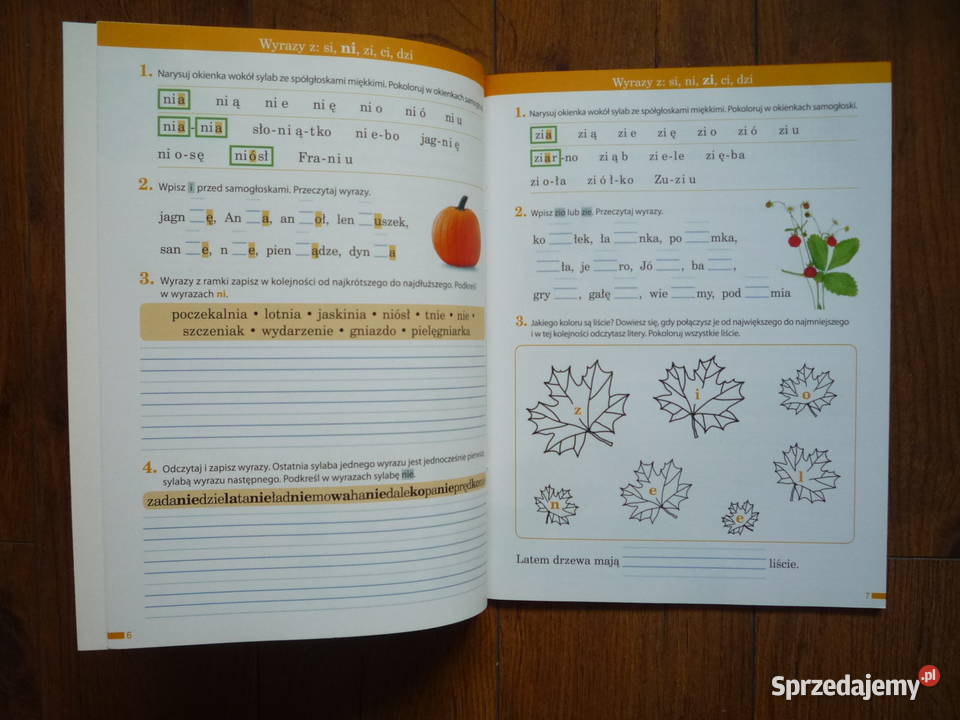 Wyrazy z: si, ni, zi, ci, dzi
1. Narysuj okienka wokół sylab ze spółgłoskami miękkimi. Pokoloruj w okienkach
nia ni ą ni e ni ę ni o ni ó ni u
nia-nia sło-ni ą-tko ni e-bo jag-ni ę
ni o-sę niósł Fra-ni u
2. Wpisz i przed samogłoskami. Przeczytaj wyrazy.
jagn __ ę, An __ a, an __ oł, len __ uszek,
san __ e, n __ e, pien __ ądze, dyn __ a
3. Wyrazy z ramki zapisz w kolejności od najkrótszego do najdłuższego. Podkreśl
w wyrazach ni.
poczekalnia • lotnia • jaskinia • niósł • tnie • nie •
szczeniak • wydarzenie • gniazdo • pielęgniarka
4. Odczytaj i zapisz wyrazy. Ostatnia sylaba jednego wyrazu jest jednocześnie pierwszą
sylabą wyrazu następnego. Podkreśl w wyrazach sylabę nie.
zadaniedzielatanieładniemowahaniedalekopanieprędko
6
Wyrazy z: si, ni, zi, ci, dzi
1. Narysuj okienka wokół sylab ze spółgłoskami miękkimi. Pokoloruj w okienkach samogłoski.
zia zi ą zi e zi ę zi o zi ó zi u
ziar-no zi ą b zi e-le zi ę-ba
zi o-ła zi ó ł-ko Zu-zi u
2. Wpisz zio lub zie. Przeczytaj wyrazy.
ko __ łek, ła __ nka, po __ mka,
__ ła, je __ ro, Jó __ , ba __ ,
gry __ , gałę __ , wie __ my, pod __ mia
3. Jakiego koloru są liście? Dowiesz się, gdy połączysz je od największego do najmniejszego
i w tej kolejności odczytasz litery. Pokoloruj wszystkie liście.
z i o
n e l
e
Latem drzewa mają __ liście.
7
Sprzedajemy.pl